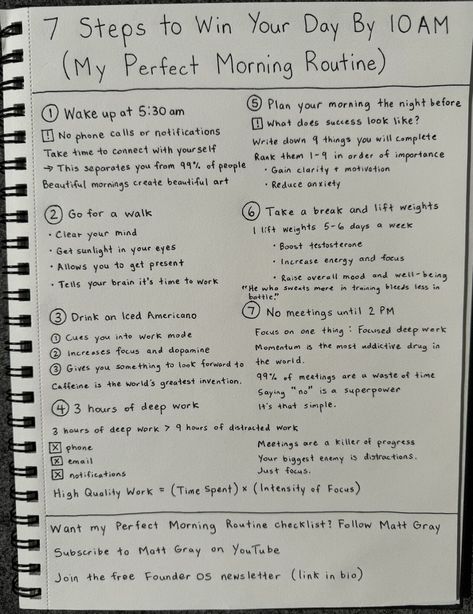 7 Steps to Win Your Day By 10AM
(My Perfect Morning Routine)
① Wake up at 5:30am
! No phone calls or notifications
Take time to connect with yourself
→ This separates you from 99% of people
Beautiful mornings create beautiful art
② Go for a walk
• Clear your mind
• Get sunlight in your eyes
• Allows you to get present
• Tells your brain it's time to work
③ Drink an Iced Americano
① Cues you into work mode
② Increases focus and dopamine
③ Gives you something to look forward to
Caffeine is the world's greatest invention.
④ 3 hours of deep work
3 hours of deep work > 9 hours of distracted work
☒ phone
☒ email
☒ notifications
High Quality Work = (Time Spent) x (Intensity of Focus)
⑤ Plan your morning the night before
! What does success look like?
Write down 9 things you will complete
Rank them 1-9 in order of importance
• Gain clarity + motivation
• Reduce anxiety
⑥ Take a break and lift weights
I lift weights 5-6 days a week
• Boost testosterone
• Increase energy and focus
• Raise overall mood and well-being
"He who sweats more in training bleeds less in
battle."
⑦ No meetings until 2 PM
Focus on one thing: Focused deep work
Momentum is the most addictive drug in
the world.
99% of meetings are a waste of time
Saying "no" is a superpower
It's that simple.
Meetings are a killer of progress
Your biggest enemy is distractions.
Just focus.
Want my Perfect Morning Routine checklist? Follow Matt Gray
Subscribe to Matt Gray on YouTube
Join the free Founder OS newsletter (link in bio)